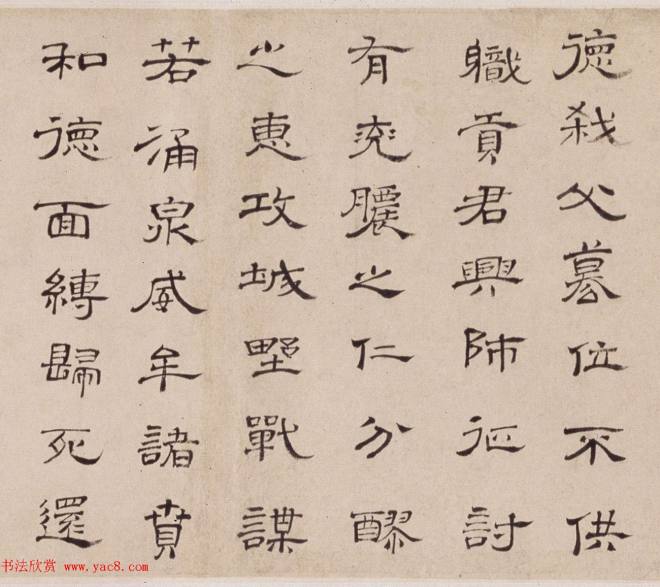 德殺父篡位不供
職貢君興師征討
有兖膿之仁分醪
之惠攻城野戰謀
若涌泉威牟諸賁
和德面縛歸死還
书法欣赏 www.yac8.com